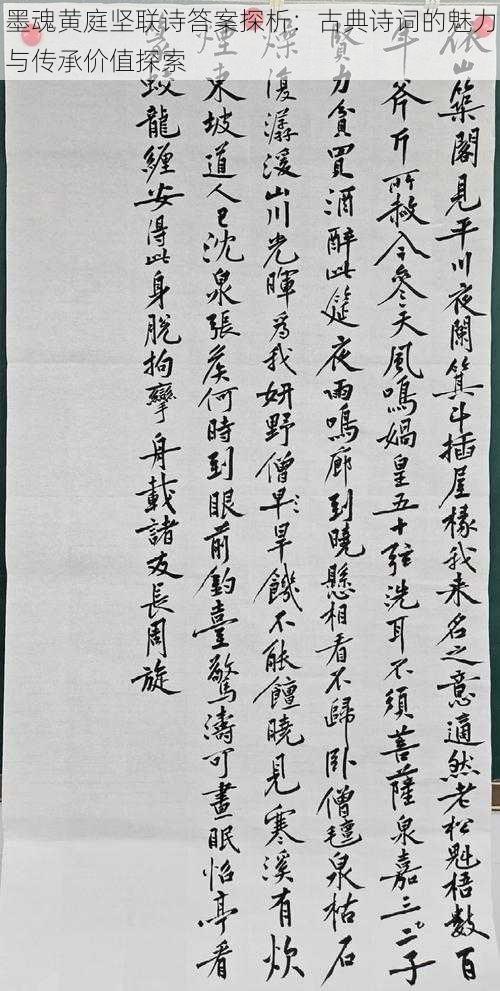 墨魂黄庭坚联诗答案探析：古典诗词的魅力
与传承价值探索
依山築閣見平川夜闌箕斗插屋椽我来名之意適然老松魁梧數百
年斧斤所赦今參天風鳴媧皇五十弦洗耳不須菩薩泉嘉三二子
賢力貧買酒醉此筵夜雨鳴廊到曉懸相看不歸卧僧氊泉枯石
燥復潺湲山川光暉為我妍野僧早旱饑不能饘曉見寒溪有炊
煙東坡道人已沈泉張矦何時到眼前釣臺驚濤可晝眠怡亭看
篆蛟龍纏安得此身脫拘攣舟載諸友長周旋